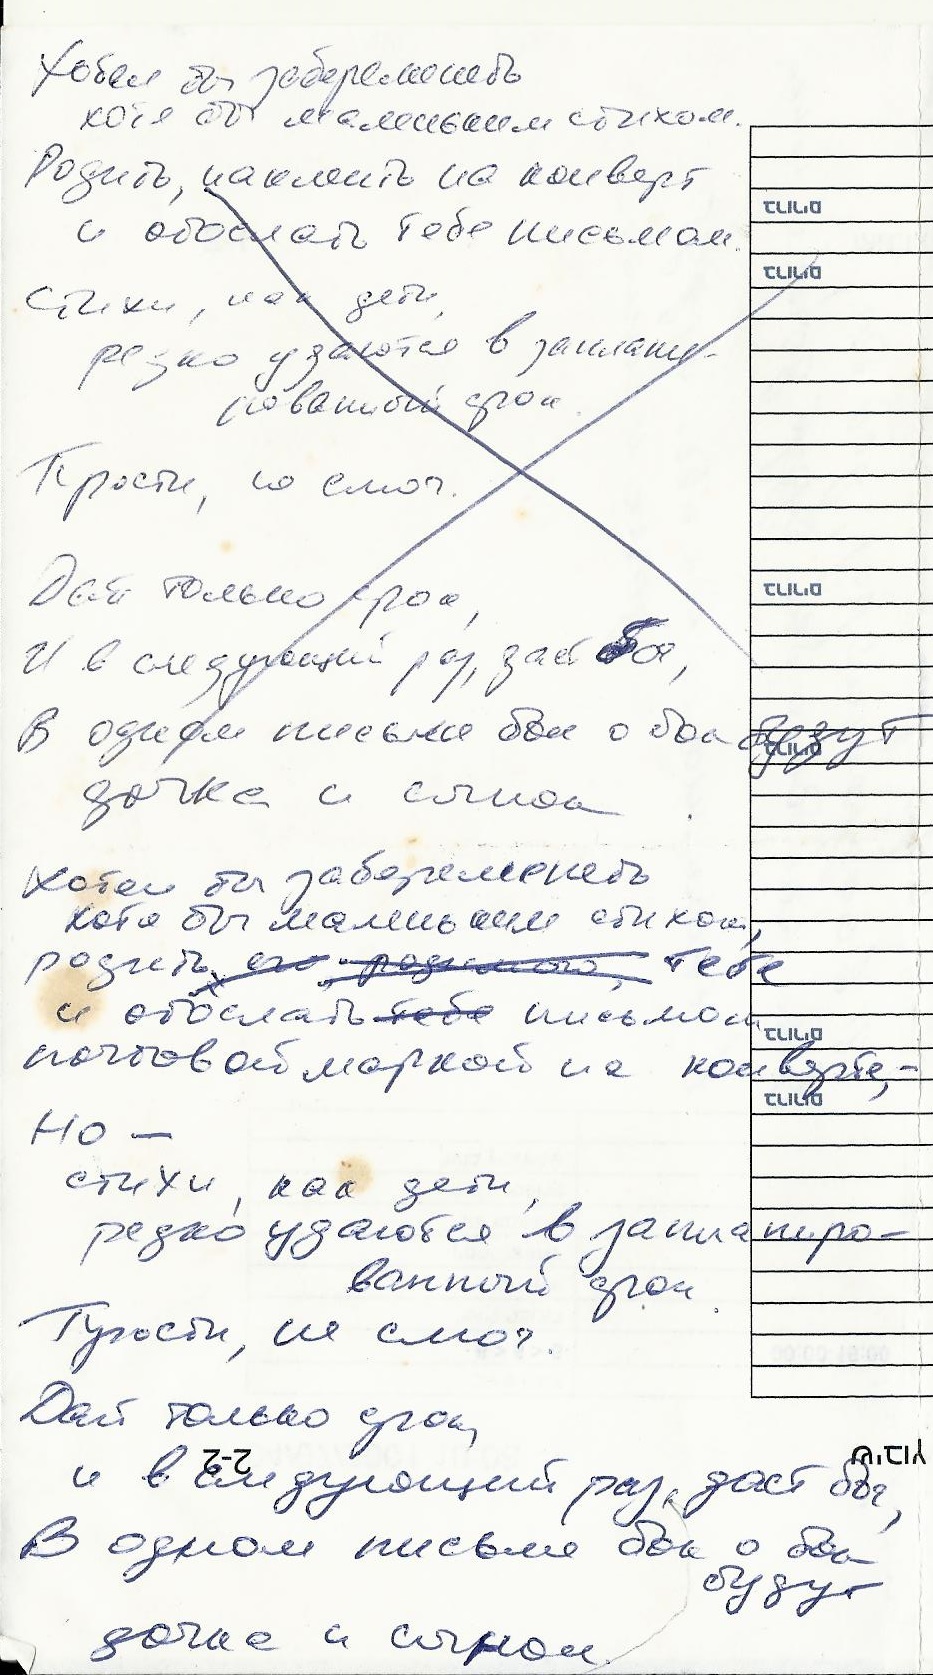 Хотел бы забеременеть
хотя бы маленьким стихом.
Родить, наклеить на конверт
и отослать тебе письмом.
Стихи, как дети,
редко удаются в заплани-
рованный срок.
Прости, не смог.
Дай только срок,
И в следующий раз, даст Бог,
В одном письме бок о бок будут
дочка и сынок
Хотел бы забеременеть
хотя бы маленьким стихом,
родить его, родимого, тебе
и отослать тебе письмом
почтовой маркой на конверте, -
Но —
стихи, как дети,
редко удаются в заплaниро-
ванный срок.
Прости, не смог.
Дай только срок,
и в следующий раз, даст бог,
В одном письме бок о бок
будут
дочка и сынок.
פנינים
פנינים
פנינים
פנינים
פנינים
פנינים
2-2